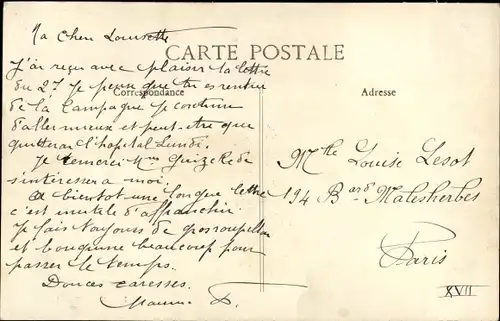 Ma chère Lousette
CARTE POSTALE
J'ai reçu avec plaisir ta lettre
du 27. Je pense que tu es rentrée
Correspondance
Adresse
de la Campagne je continue
d'aller mieux et peut-être que
quitterai l'hopital Lundi.
Je remercie Mme Guizelle de
s'intéresser a moi.
A bientot une longue lettre
c'est inutile d'affranchir
Je fais toujours de
et bouquine beaucoup pour
passer le temps.
Douces caresses.
Mlle Louise Lesot
194 Bard Malesherbes
Paris
XVII